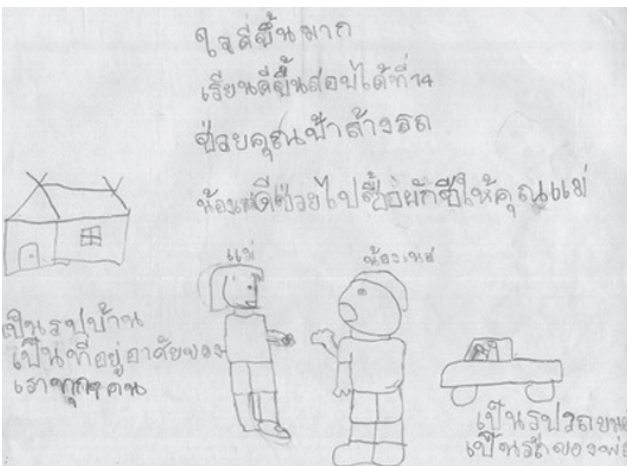 ใจดีขึ้นมาก
เรียนดีขึ้นสอบได้ที่14
ช่วยคุณป้าล้างรถ
ดีช่วยไปซื้อผักชีให้คุณแม่
แม่
เป็นรูปบ้าน
เป็นที่อยู่อาศัยของ
เราทุกๆคน
เป็นรูปรถ
เป็นรถของพ่อ